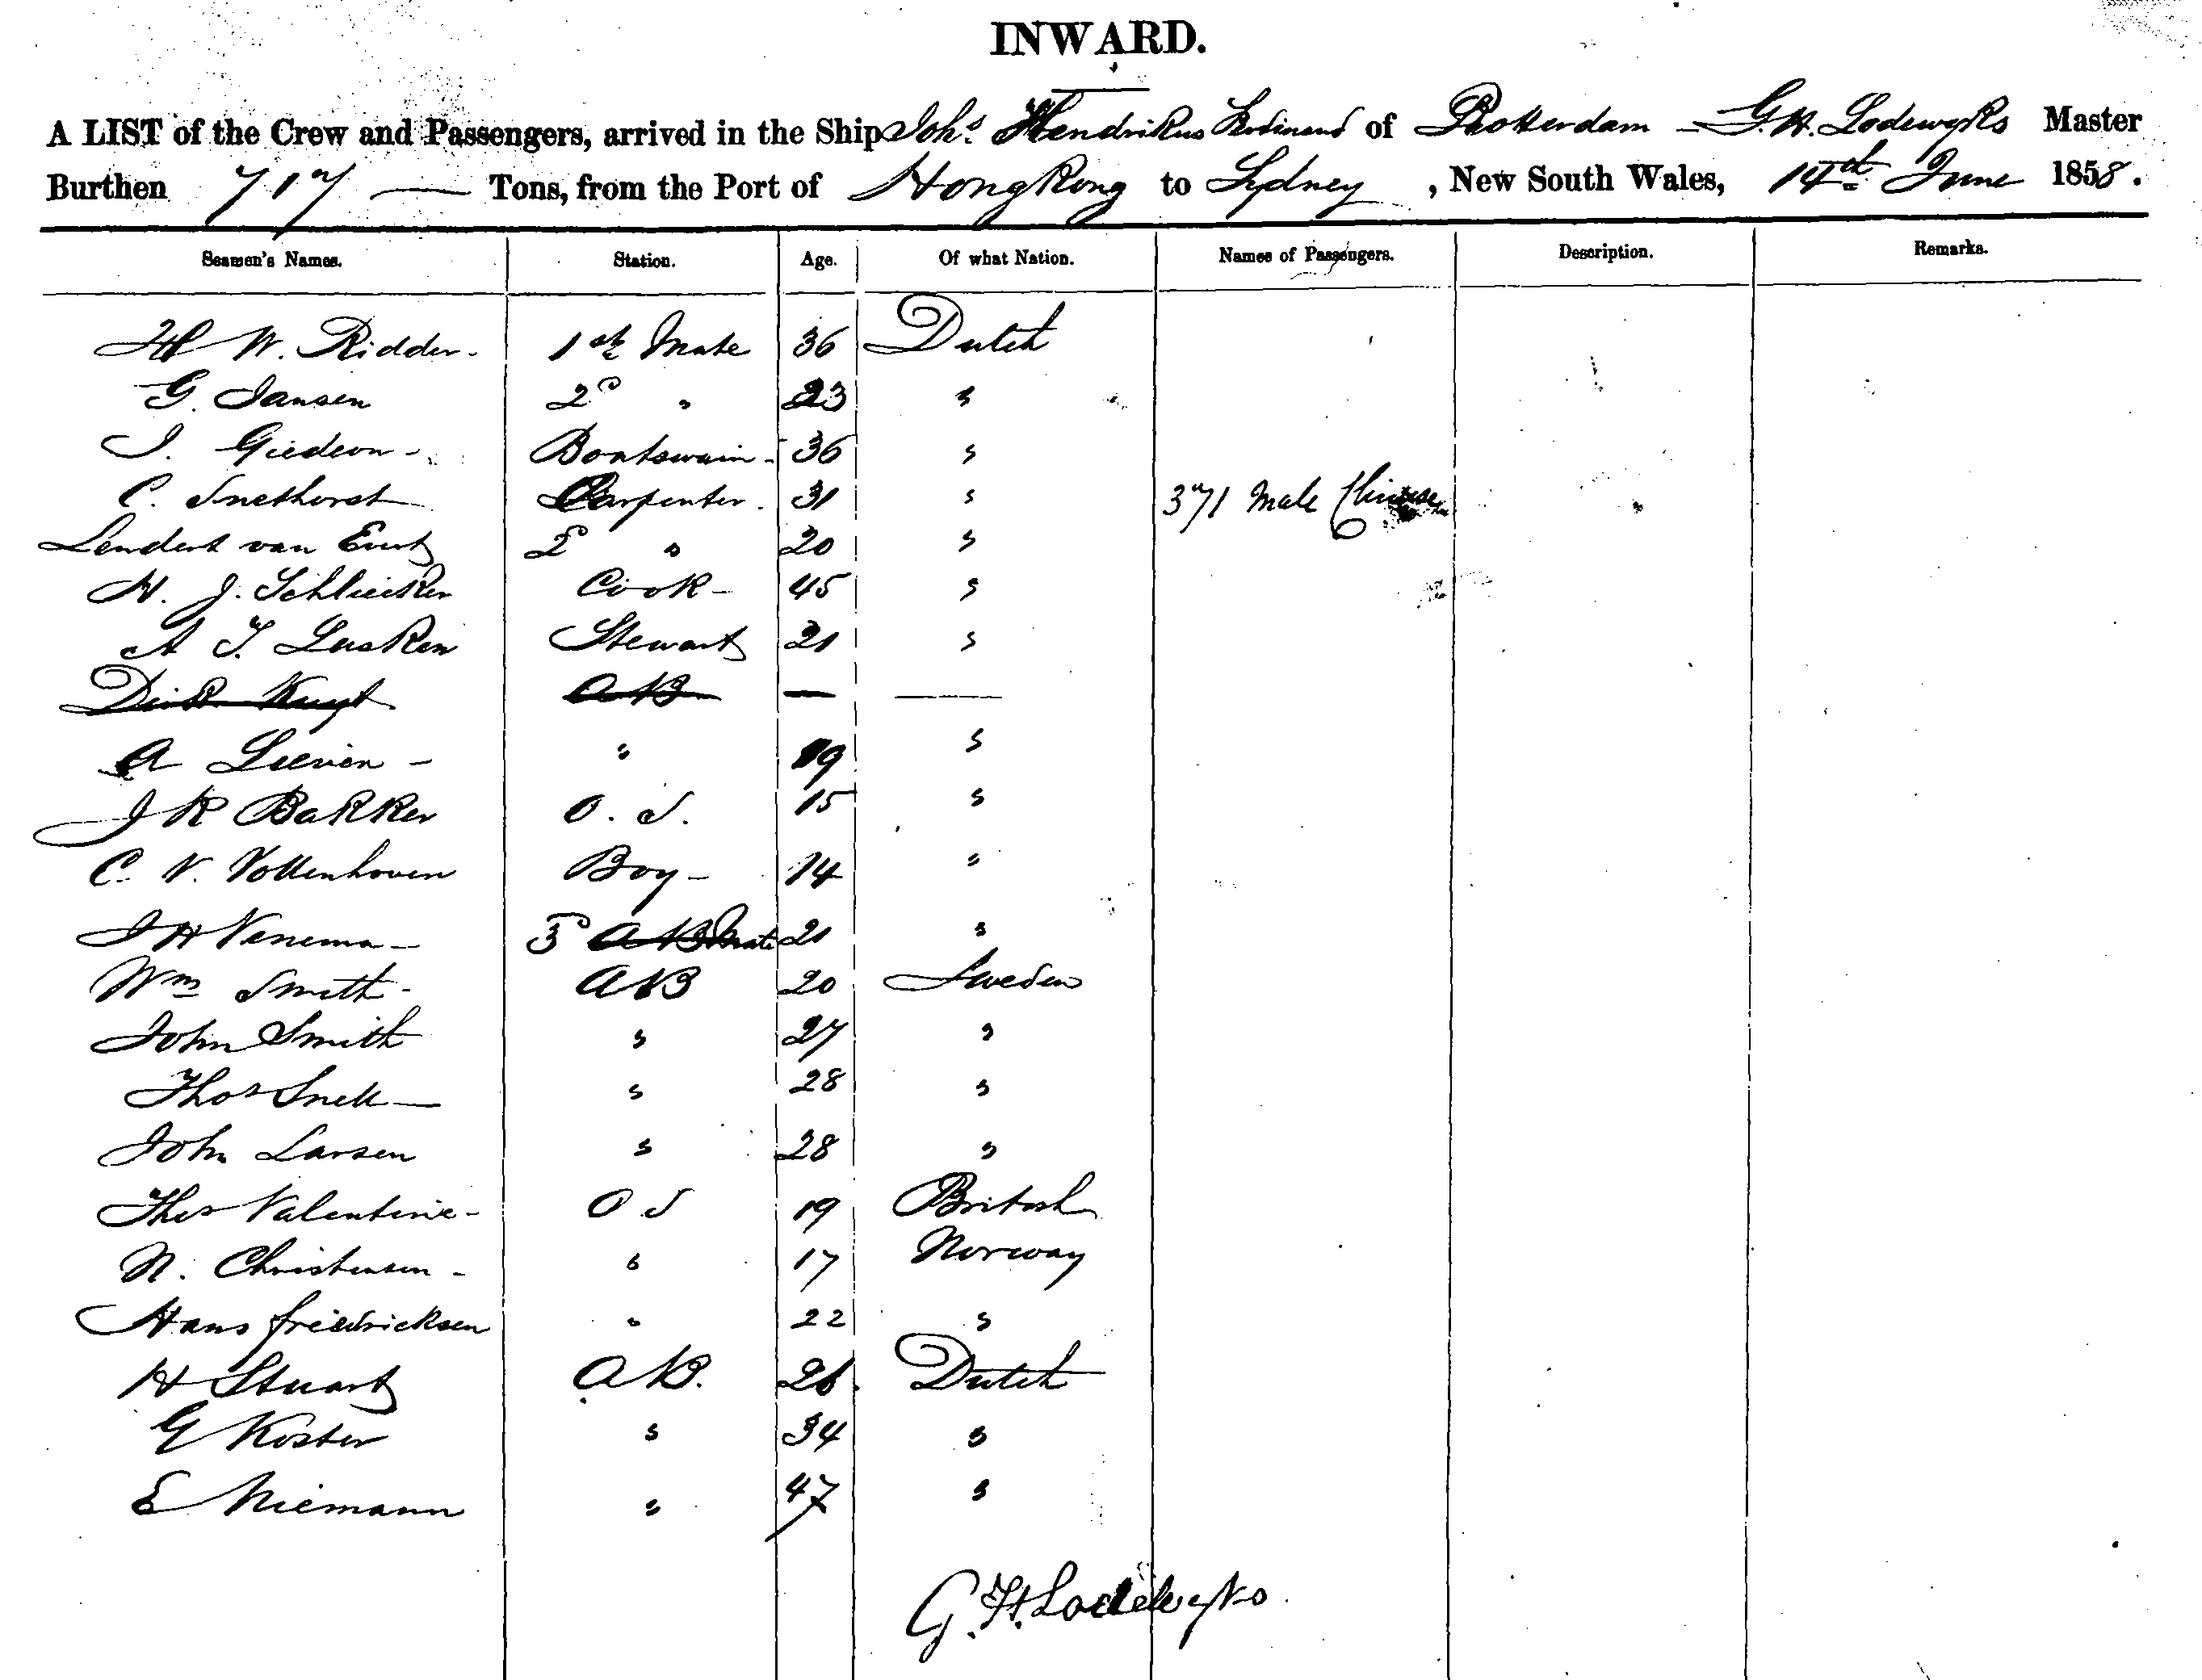 INWARD.
A LIST of the Crew and Passengers, arrived in the Ship Johs. Hendrikus Ferdinand of Rotterdam - G. H. Lodewyks Master
Burthen 717 — Tons, from the Port of HongKong to Sydney, New South Wales, 14th June 1858.
Seamen's Names. Station. Age. Of what Nation. Names of Passengers. Description. Remarks.
W. Ridder - 1st Mate 36 Dutch
G. Jansen 2d " 23 "
J. Giedeon - Boatswain - 36 "
C. Snethorst Carpenter. 31 " 371 Male Chinese
Lendert van 2d " 20 "
H. J. Schliecker Cook - 45 "
A T. Lusken Stewart 21 "
Dirk Kuyt AB — —
A Lieven - " 19 "
J K Bakker O. S. 15 "
C. V. Vollenhoven Boy - 14 "
J H Venema - 3d AB Mate 21 "
Wm Smith - AB 20 Sweden
John Smith " 27 "
Thos Snell — " 28 "
John Larsen " 28 "
Thos Valentine - O S 19 British
N. Christensen - " 17 Norway
Hans friedricksen " 22 "
H Stuart AB. 26 Dutch
G Koster " 34 "
E Niemann " 47 "
G. H. Lodewyks